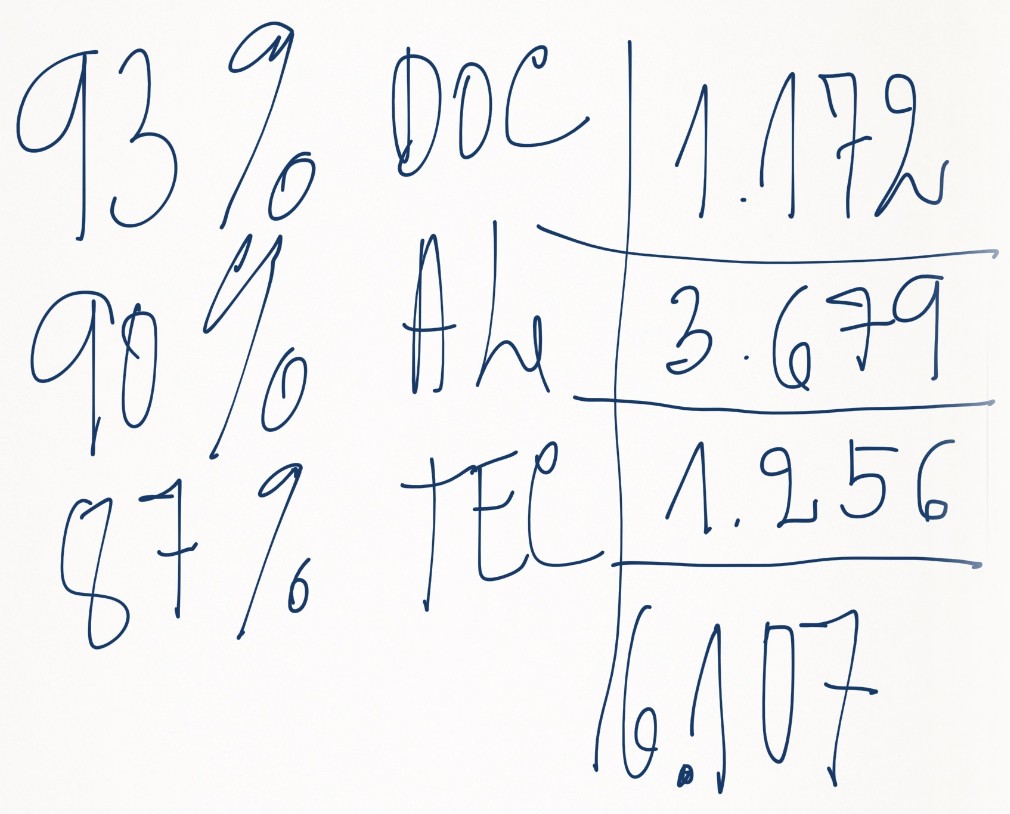 93% DOC 1.172
90% ALU 3.679
87% TEC 1.256
6.107